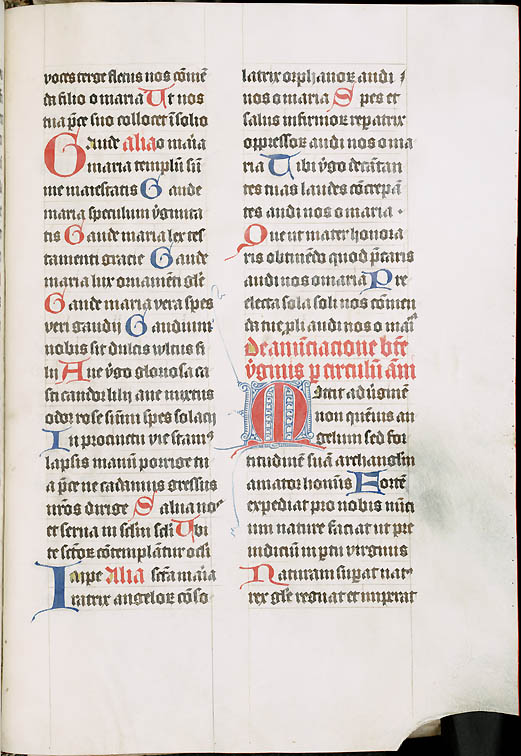 voces terge fletus nos cōmē
da filio o maria Ut nos
tua p̄ce suo collocet ī solio
Gaude alia o maīa
o maria templū sū
me maiestatis Gaude
maria speculum v̄ginita
tis Gaude maria lex tes
tamenti gracie Gaude
maria lux ornamēti glē
Gaude maria vera spes
veri gaudij Gaudium
nobis sit dulcis vultus fi
lij Aue v̓go gloriosa ca
sti candor lilij aue mixtus
odor rose sūmi spes solacij
In procinctu vie stam⁹
lapsis manū porrige tu
a p̄ce ne cadamus gressus
nr̄os dirige Salua nos
et serua in sclm scl̄i Tibi
te sctōꝝ cōtemplātur oc̄li
Iaipe Alia sctā maīa
iatrix angeloꝝ cōso
latrix orphanoꝝ audi
nos o maria Spes et
salus infirmoꝝ reparatrix
oppressoꝝ audi nos o ma
ria Tibi v̓go decātan
tes tuas laudes cōcrepā
tes audi nos o maria
Que ut mater honora
ris obtinēdo quod p̄caris
audi nos o maria Pre
electa sola soli nos cōmen
da tue pli audi nos o maīa
De anūciacione btē
v̓ginis p̱ circulū āni
Mittit ad v̓ginē
non quēuis an
gelum sed for
titudinē suā archangelm
amator hominis Fortē
expediat pro nobis nūci
um nature faciat ut pre
iudiciū in p̱tu virginis
Naturam sup̱at nat⁹
rex glē regnat et imperat